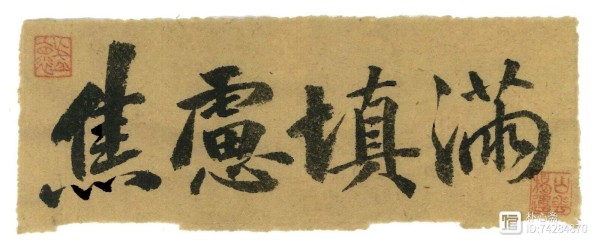 焦慮填滿
ID:74284870